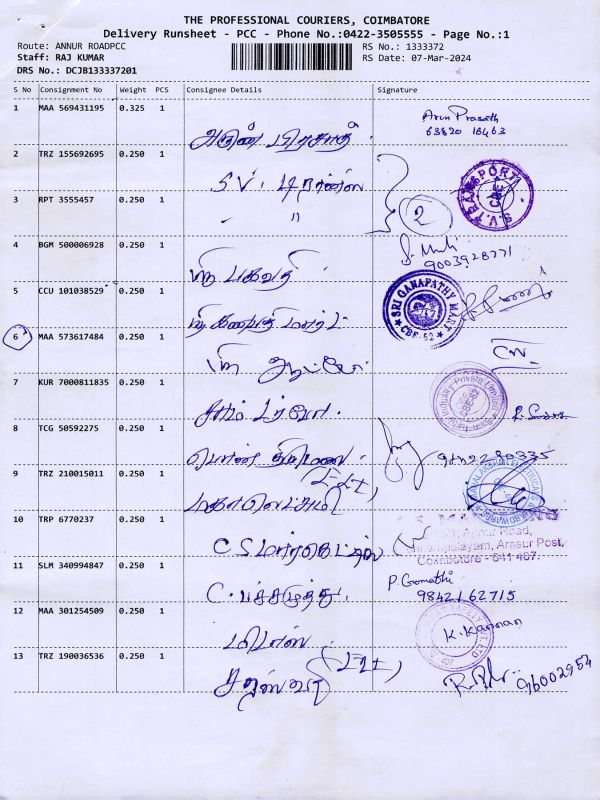 THE PROFESSIONAL COURIERS, COIMBATORE
Delivery Runsheet - PCC - Phone No.:0422-3505555 - Page No.:1
Route: ANNUR ROADPCC RS No.: 1333372
Staff: RAJ KUMAR RS Date: 07-Mar-2024
DRS No.: DCJB133337201
S No Consignment No Weight PCS Consignee Details Signature
1 MAA 569431195 0.325 1 அருண் பிரசாத் Arun Prasath
63820 16463
2 TRZ 155692695 0.250 1 S.V. டிரான்ஸ் S.V. TRANSPORT CBE
3 RPT 3555457 0.250 1 " 2
4 BGM 500006928 0.250 1 ஸ்ரீ பகவதி
9003928771
5 CCU 101038529 0.250 1 ஸ்ரீ கணபதி மார்ட் SRI GANAPATHY MART CBE-52
6 MAA 573617484 0.250 1 ஸ்ரீ
7 KUR 7000811835 0.250 1
8 TCG 50592275 0.250 1 9842280335
9 TRZ 210015011 0.250 1 மகாலெட்சுமி
10 TRP 6770237 0.250 1 C.S மார்கெட்டிங் Arasur Post,
Coimbatore - 641 407.
11 SLM 340994847 0.250 1 C. பச்சமுத்து. P. Gomathi
9842162715
12 MAA 301254509 0.250 1 K. Kannan
13 TRZ 190036536 0.250 1 96002954